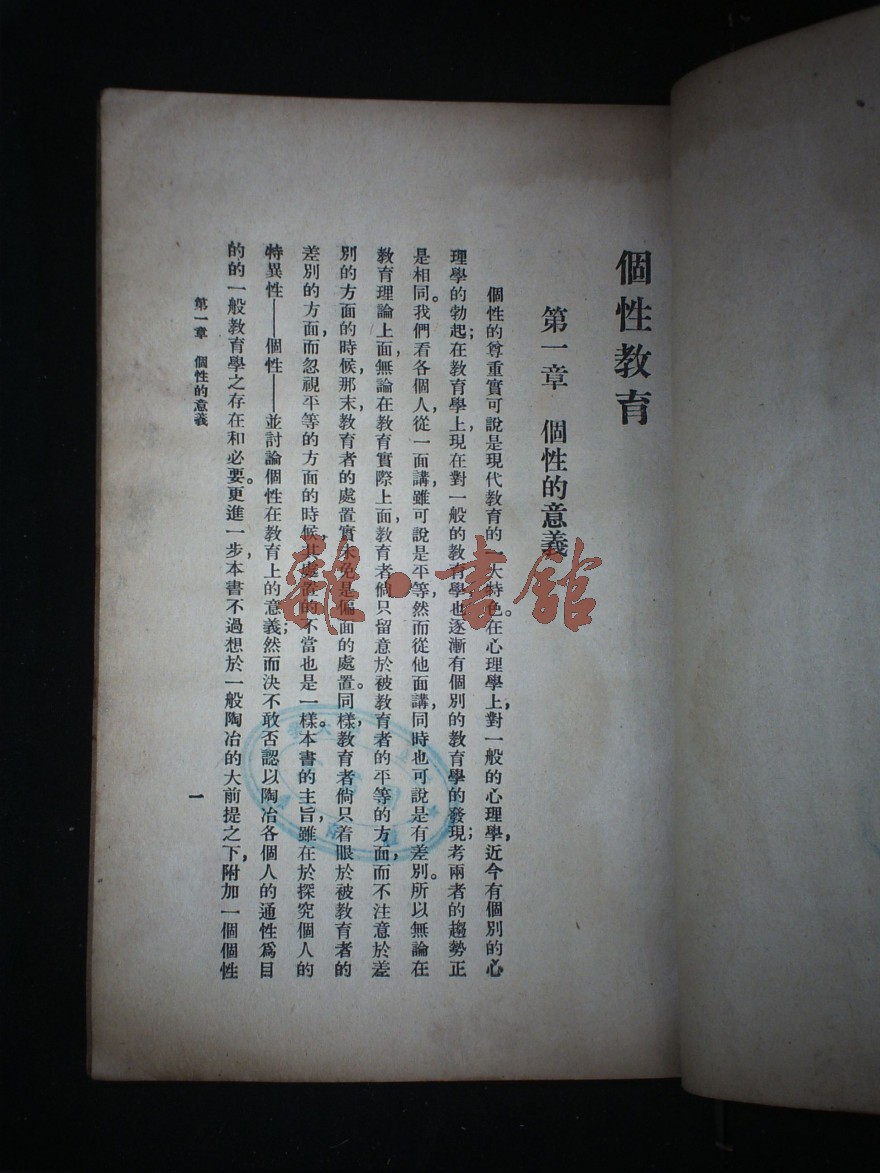 個性教育
第一章　個性的意義
個性的尊重實可說是現代教育的一大特色。在心理學上，對一般的心理學，近今有個別的心
理學的勃起；在教育學上，現在對一般的教育學也逐漸有個別的教育學的發現；考兩者的趨勢正
是相同。我們看各個人從一面講，雖可說是平等，然而從他面講，同時也可說是有差別。所以無論在
教育理論上面，無論在教育實際上面，教育者倘只留意於被教育者的平等的方面，而不注意於差
別的方面的時候，那末教育者的處置實未免是偏面的處置。同樣，教育者倘只着眼於被教育者的
差別的方面，而忽視平等的方面的時候，其處置的不當也是一樣。本書的主旨，雖在於探究個人的
特異性——個性——並討論個性在教育上的意義；然而決不敢否認以陶冶各個人的通性爲目
的的一般教育學之存在和必要。更進一步，本書不過想於一般陶冶的大前提之下，附加一個個性
第一章　個性的意義
一
雜·書館